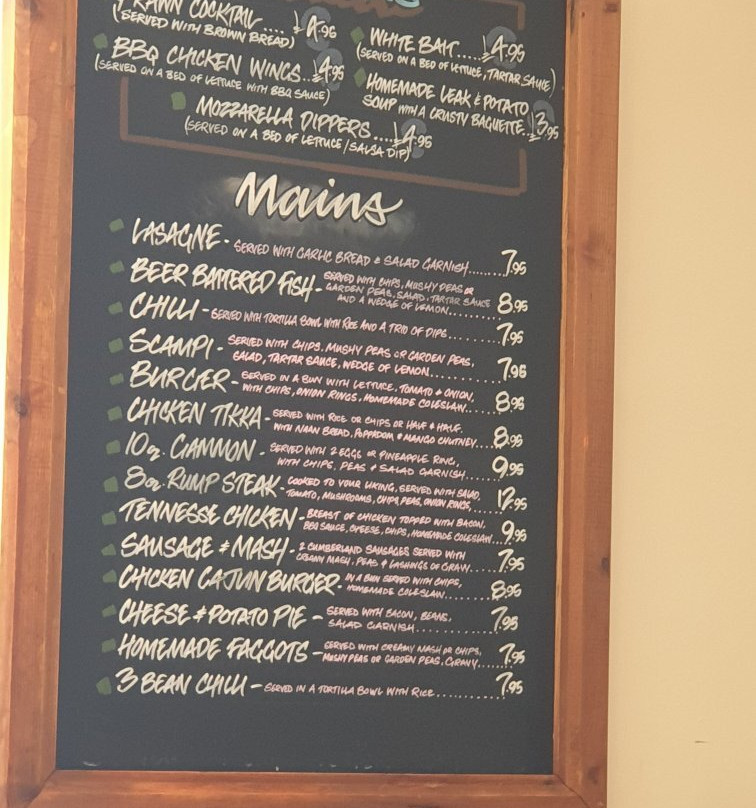 PRAWN COCKTAIL.... £4.95
(SERVED WITH BROWN BREAD)
BBQ CHICKEN WINGS...£4.95
(SERVED ON A BED OF LETTUCE WITH BBQ SAUCE)
WHITE BAIT.....£4.95
(SERVED ON A BED OF LETTUCE, TARTAR SAUCE)
HOMEMADE LEAK & POTATO
SOUP WITH A CRUSTY BAGUETTE..£3.95
MOZZARELLA DIPPERS....£4.95
(SERVED ON A BED OF LETTUCE/SALSA DIP)
Mains
LASAGNE - SERVED WITH GARLIC BREAD & SALAD GARNISH........7.95
BEER BATTERED FISH - SERVED WITH CHIPS, MUSHY PEAS OR
GARDEN PEAS, SALAD, TARTAR SAUCE
AND A WEDGE OF LEMON.......... 8.95
CHILLI - SERVED WITH TORTILLA BOWL WITH RICE AND A TRIO OF DIPS.......... 7.95
SCAMPI - SERVED WITH CHIPS, MUSHY PEAS OR GARDEN PEAS,
SALAD, TARTAR SAUCE, WEDGE OF LEMON.............. 7.95
BURGER - SERVED IN A BUN WITH LETTUCE, TOMATO & ONION,
WITH CHIPS, ONION RINGS, HOMEMADE COLESLAW..... 8.95
CHICKEN TIKKA - SERVED WITH RICE OR CHIPS OR HALF & HALF.
WITH NAAN BREAD, POPPADOM & MANGO CHUTNEY.... 8.95
10oz. GAMMON - SERVED WITH 2 EGGS OR PINEAPPLE RING,
WITH CHIPS, PEAS & SALAD GARNISH....... 9.95
8oz. RUMP STEAK - COOKED TO YOUR LIKING, SERVED WITH SALAD,
TOMATO, MUSHROOMS, CHIPS, PEAS, ONION RINGS,...... 12.95
TENNESSE CHICKEN - BREAST OF CHICKEN TOPPED WITH BACON,
BBQ SAUCE, CHEESE, CHIPS, HOMEMADE COLESLAW...9.95
SAUSAGE & MASH - 2 CUMBERLAND SAUSAGES SERVED WITH
CREAMY MASH, PEAS & LASHINGS OF GRAVY.....7.95
CHICKEN CAJUN BURGER - IN A BUN SERVED WITH CHIPS,
HOMEMADE COLESLAW........ 8.95
CHEESE & POTATO PIE - SERVED WITH BACON, BEANS,
SALAD GARNISH............... 7.95
HOMEMADE FAGGOTS - SERVED WITH CREAMY MASH OR CHIPS,
MUSHY PEAS OR GARDEN PEAS, GRAVY......7.95
3 BEAN CHILLI - SERVED IN A TORTILLA BOWL WITH RICE............. 7.95